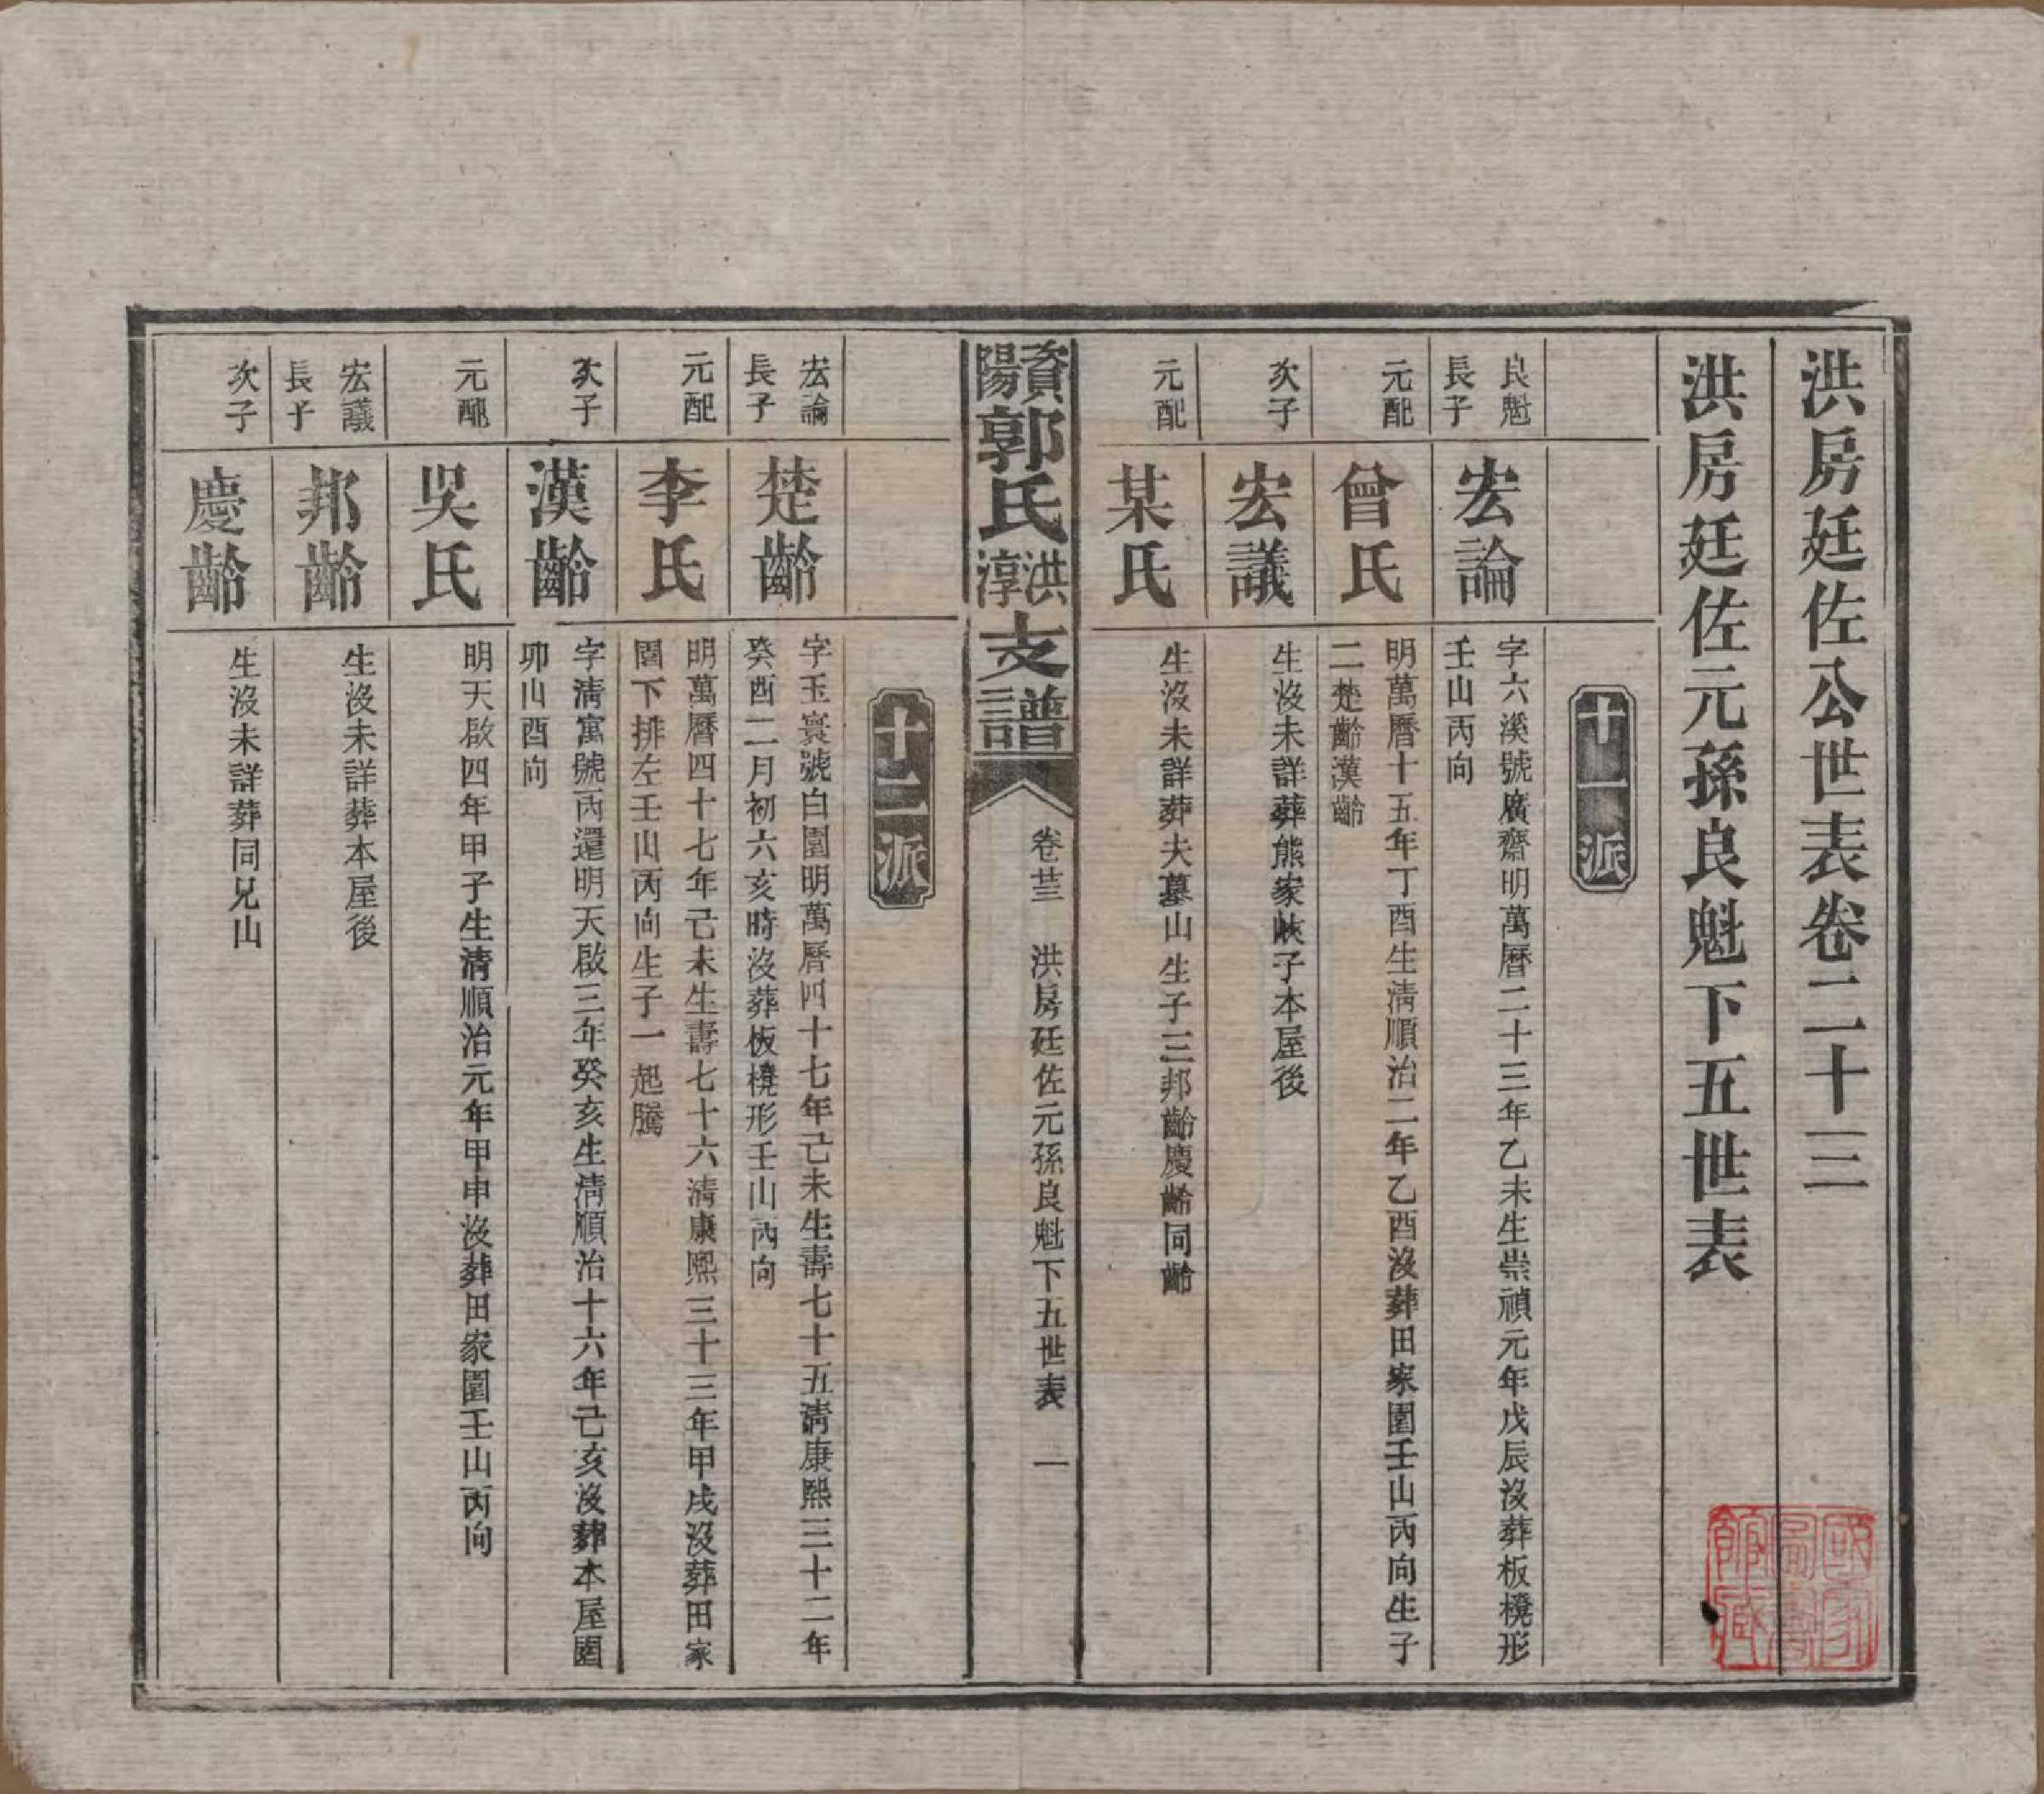 洪房廷佐公世表卷二十三
洪房廷佐元孫良魁下五世表
十一派
良魁
長子
宏論
字六溪號廣齋明萬曆二十三年乙未生崇禎元年戊辰沒葬板櫈形
壬山丙向
元配
曾氏
明萬曆十五年丁酉生清順治二年乙酉沒葬田家園壬山丙向生子
二楚齡漢齡
次子
宏議
生沒未詳葬熊家峽子本屋後
元配
某氏
生沒未詳葬夫墓山生子三邦齡慶齡同齡
資陽郭氏洪淳支譜
卷廿三
洪房廷佐元孫良魁下五世表
一
十二派
宏論
長子
楚齡
字玉寰號白園明萬曆四十七年己未生壽七十五清康熙三十二年
癸酉二月初六亥時沒葬板櫈形壬山丙向
元配
李氏
明萬曆四十七年己未生壽七十六清康熙三十三年甲戌沒葬田家
園下排左壬山丙向生子一起騰
次子
漢齡
字清寓號丙還明天啟三年癸亥生清順治十六年己亥沒葬本屋園
卯山酉向
元配
吳氏
明天啟四年甲子生清順治元年甲申沒葬田家園壬山丙向
宏議
長子
邦齡
生沒未詳葬本屋後
次子
慶齡
生沒未詳葬同兄山
國家圖書館藏